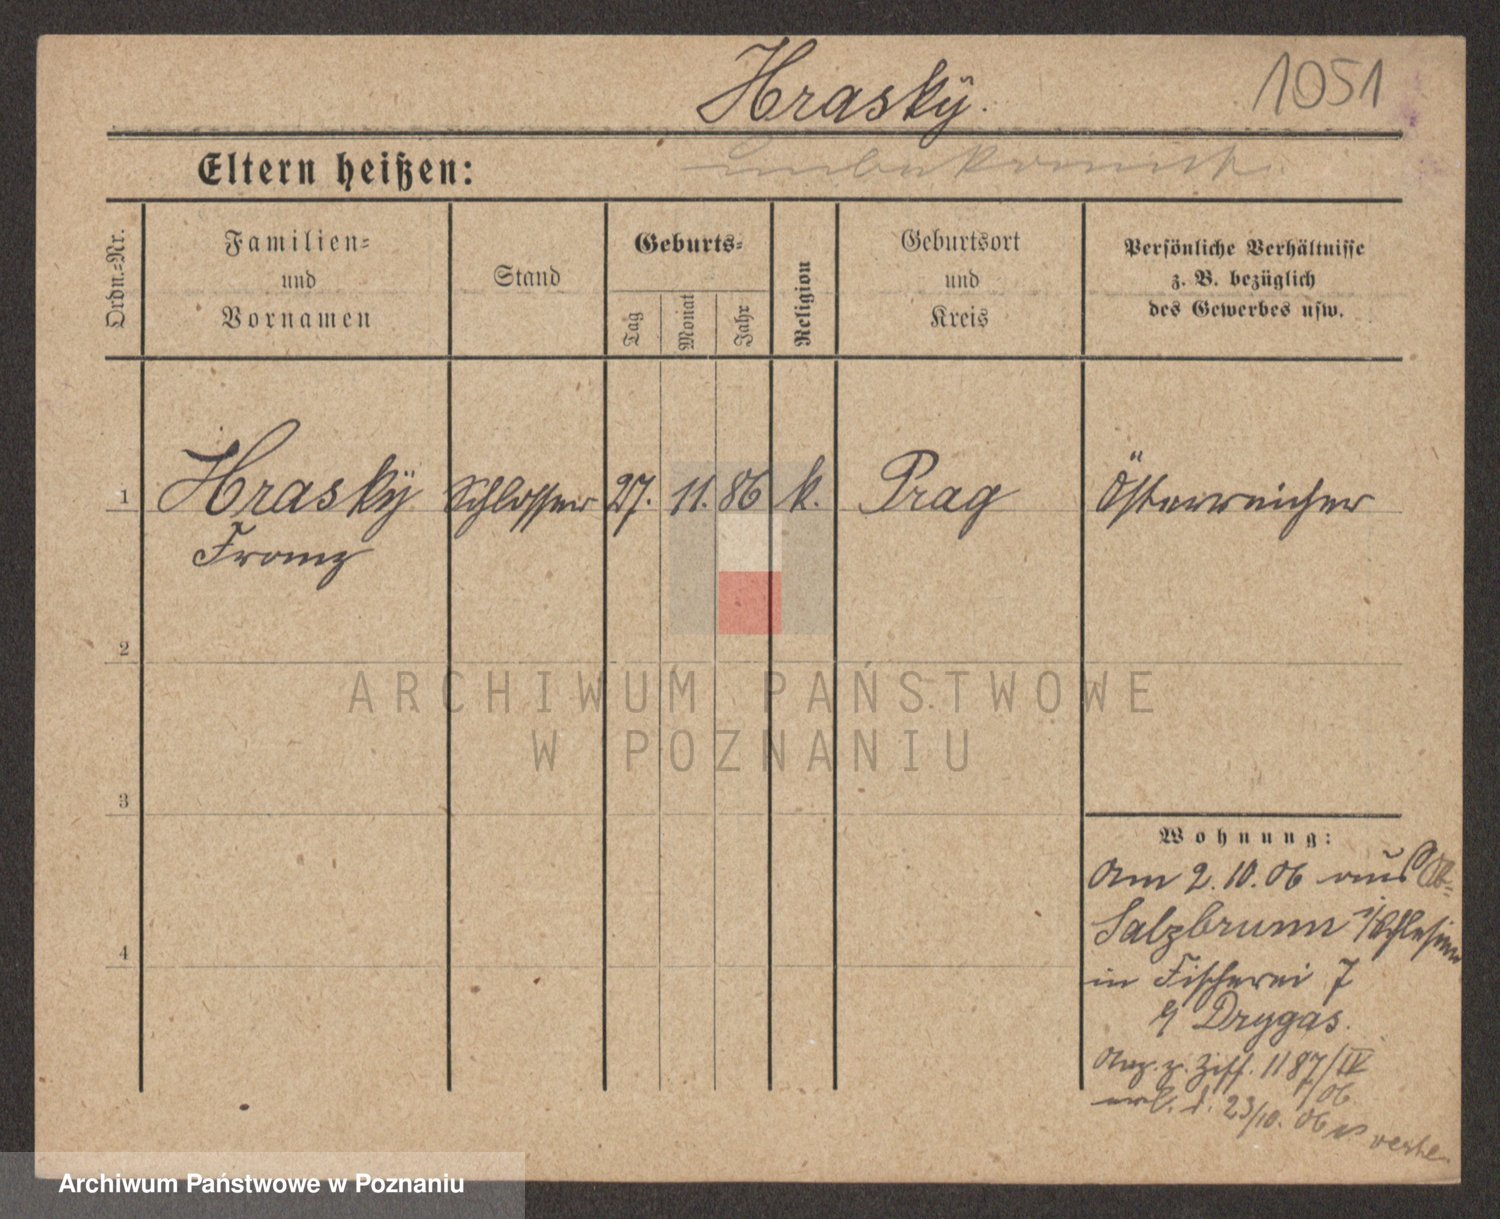 Hraskÿ. 1051
Eltern heißen:
Ordn.-Nr.
Familien-
und
Vornamen
Stand
Geburts-
Tag
Monat
Jahr
Religion
Geburtsort
und
Kreis
Persönliche Verhältnisse
z. B. bezüglich
des Gewerbes usw.
1 Hraskÿ Schlosser 27. 11. 86 k. Prag Österreicher
Franz
2
3
4
ARCHIWUM PAŃSTWOWE
W POZNANIU
Wohnung:
Am 2.10.06 aus
Salzbrunn i/Schlesien
in Fischerei 7
Drygas.
Ziff. 1187/IV
/06
23/10. 06
Archiwum Państwowe w Poznaniu